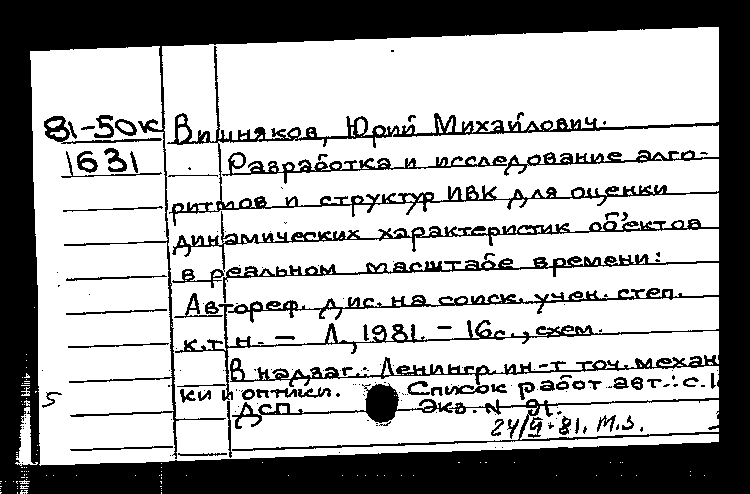 81-50к Вишняков, Юрий Михайлович.
1631 Разработка и исследование алго-
ритмов и структур ИВК для оценки
динамических характеристик об'ектов
в реальном масштабе времени:
Автореф. дис. на соиск. учен. степ.
к.т.н. — Л., 1981. - 16с., схем.
В надзаг.: Ленингр. ин-т точ. механ
ки и оптики. Список работ авт.: с.1
5 ДСП. Экз. N 91.
24/IX-81. М.З.